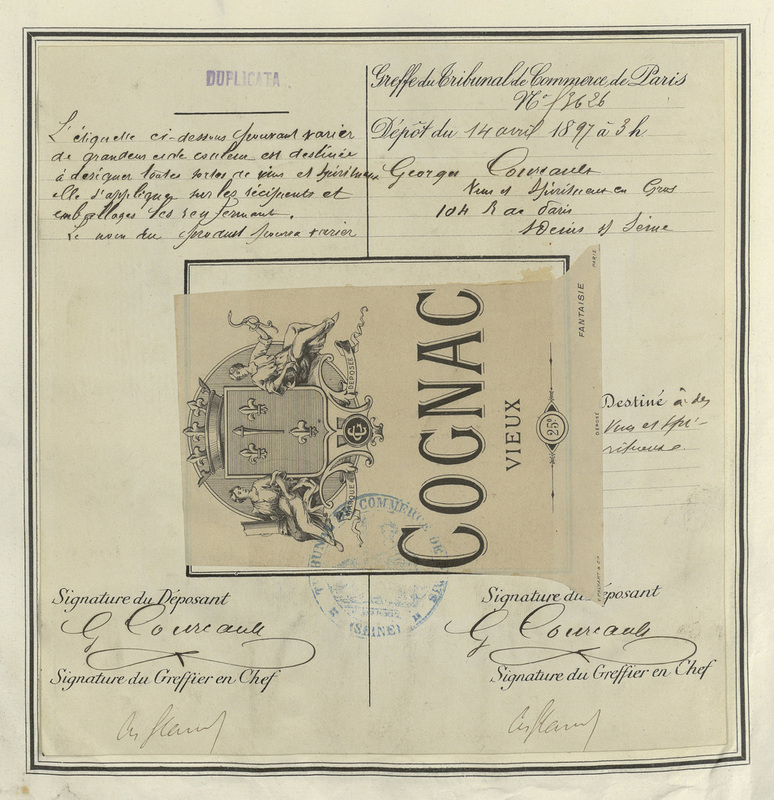 DUPLICATA
L'étiquette ci-dessous pouvant varier
de grandeur et de couleur est destinée
à désigner toutes sortes de vins et spiritueux
elle s'applique sur les récipients et
emballages les renfermant.
Le nom du produit pourra varier
Greffe du Tribunal de Commerce de Paris
No
Dépôt du 14 avril 1897 à 3h
Georges Courcault
Vins et Spiritueux en Gros
104 R de Paris
St Denis s/ Seine
COGNAC
VIEUX
25°
FANTAISIE
DÉPOSÉE
MARQUE
GC
DÉPOSÉ
PARIS
Destiné à des
Vins et Spi-
ritueux.
TRIBUNAL DE COMMERCE DE
(SEINE)
Signature du Déposant
G Courcault
Signature du Greffier en Chef
Signature du Déposant
G Courcault
Signature du Greffier en Chef